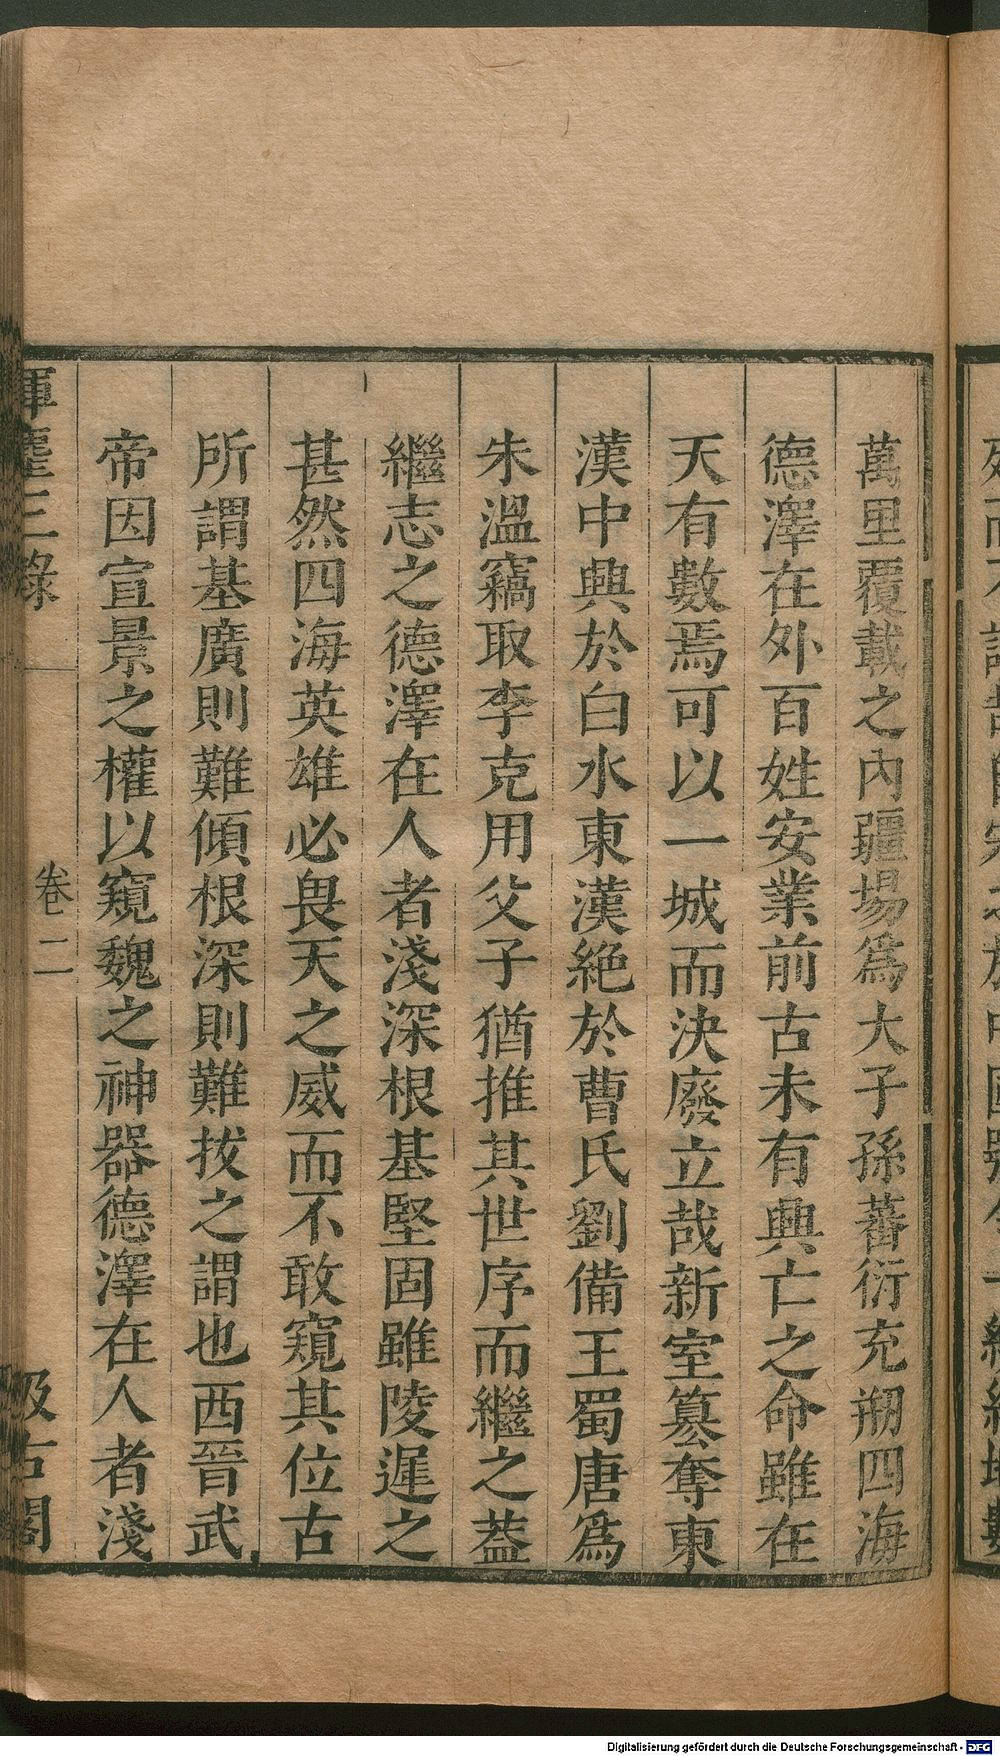 萬里覆載之內疆場爲大子孫蕃衍充牣四海
德澤在外百姓安業前古未有興亡之命雖在
天有數焉可以一城而決廢立哉新室篡奪東
漢中興於白水東漢絕於曹氏劉備王蜀唐爲
朱溫竊取李克用父子猶推其世序而繼之蓋
繼志之德澤在人者淺深根基堅固雖陵遲之
甚然四海英雄必畏天之威而不敢窺其位古
所謂基廣則難傾根深則難拔之謂也西晉武
帝因宣景之權以窺魏之神器德澤在人者淺
揮麈三錄
卷二
汲古閣
Digitalisierung gefördert durch die Deutsche Forschungsgemeinschaft - DFG